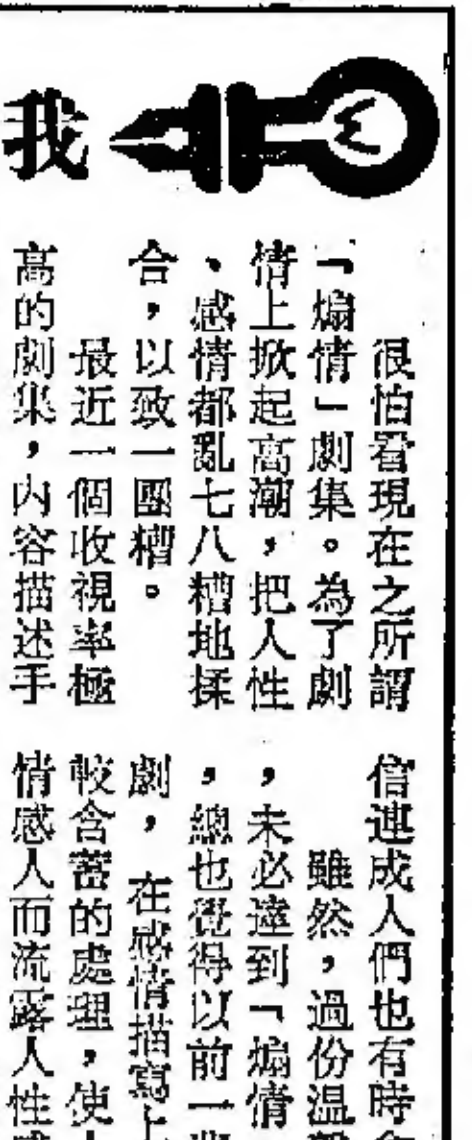 我
很怕看現在之所謂
「煽情」劇集。為了劇
情上掀起高潮，把人性
、感情都亂七八糟地揉
合，以致一團糟。
最近一個收視率極
高的劇集，內容描述手
信連成人們也有時
雖然，過份溫
，未必達到「煽情
，總也覺得以前一
劇，在感情描寫上
較含蓄的處理，使
情感人而流露人性